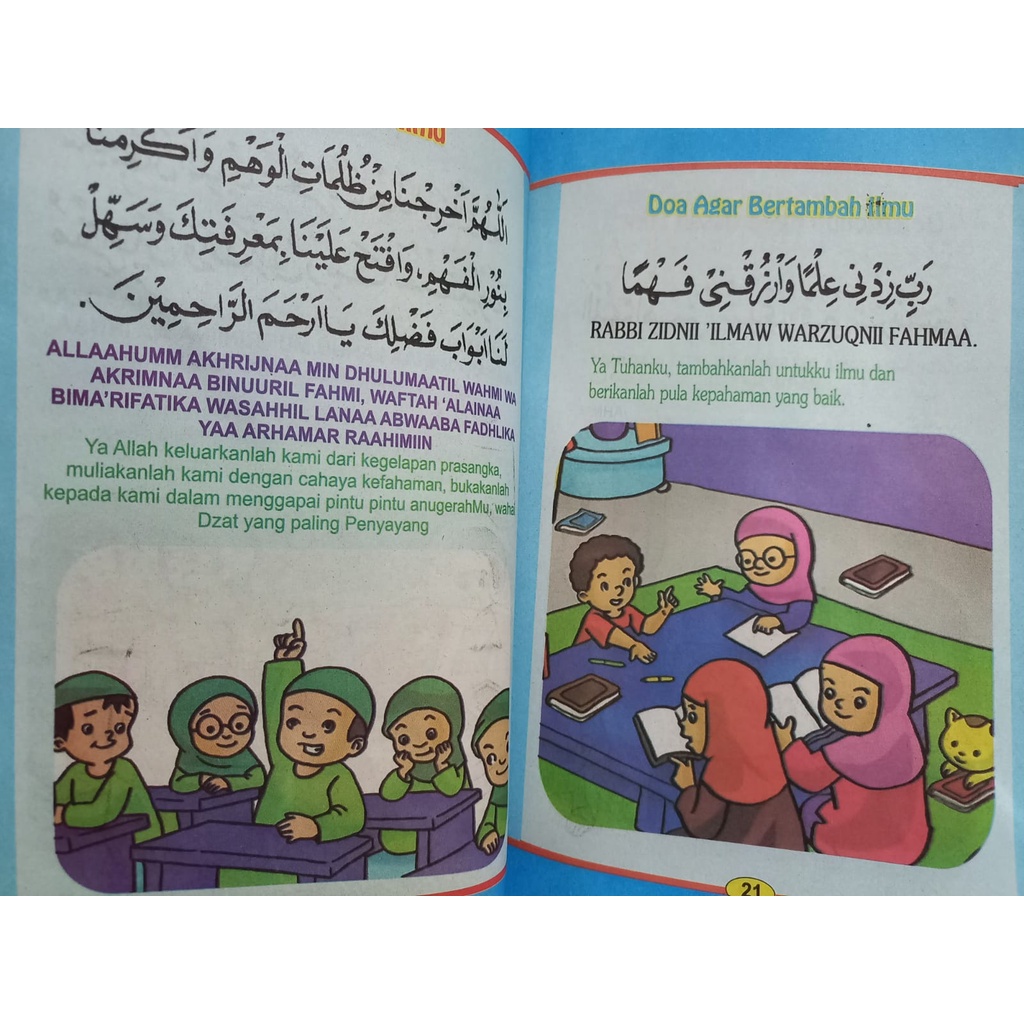 اَللّٰهُمَّ اَخْرِجْنَا مِنْ ظُلُمَاتِ الْوَهْمِ وَاَكْرِمْنَا
بِنُوْرِ الْفَهْمِ، وَافْتَحْ عَلَيْنَا بِمَعْرِفَتِكَ وَسَهِّلْ
لَنَا اَبْوَابَ فَضْلِكَ يَا اَرْحَمَ الرَّاحِمِيْنَ.
ALLAAHUMM AKHRIJNAA MIN DHULUMAATIL WAHMI WA
AKRIMNAA BINUURIL FAHMI, WAFTAH ‘ALAINAA
BIMA’RIFATIKA WASAHHIL LANAA ABWAABA FADHLIKA
YAA ARHAMAR RAAHIMIIN
Ya Allah keluarkanlah kami dari kegelapan prasangka,
muliakanlah kami dengan cahaya kefahaman, bukakanlah
kepada kami dalam menggapai pintu pintu anugerahMu, waha
Dzat yang paling Penyayang
Doa Agar Bertambah Ilmu
رَبِّ زِدْنِى عِلْمًا وَارْزُقْنِىْ فَهْمًا
RABBI ZIDNII ’ILMAW WARZUQNII FAHMAA.
Ya Tuhanku, tambahkanlah untukku ilmu dan
berikanlah pula kepahaman yang baik.
21